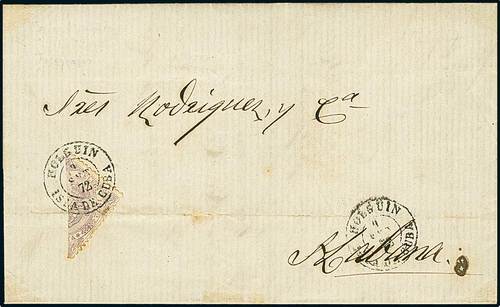 Sres Rodriguez, y Cª
HOLGUIN
72
ISLA DE CUBA
HOLGUIN
CUBA
Habana.